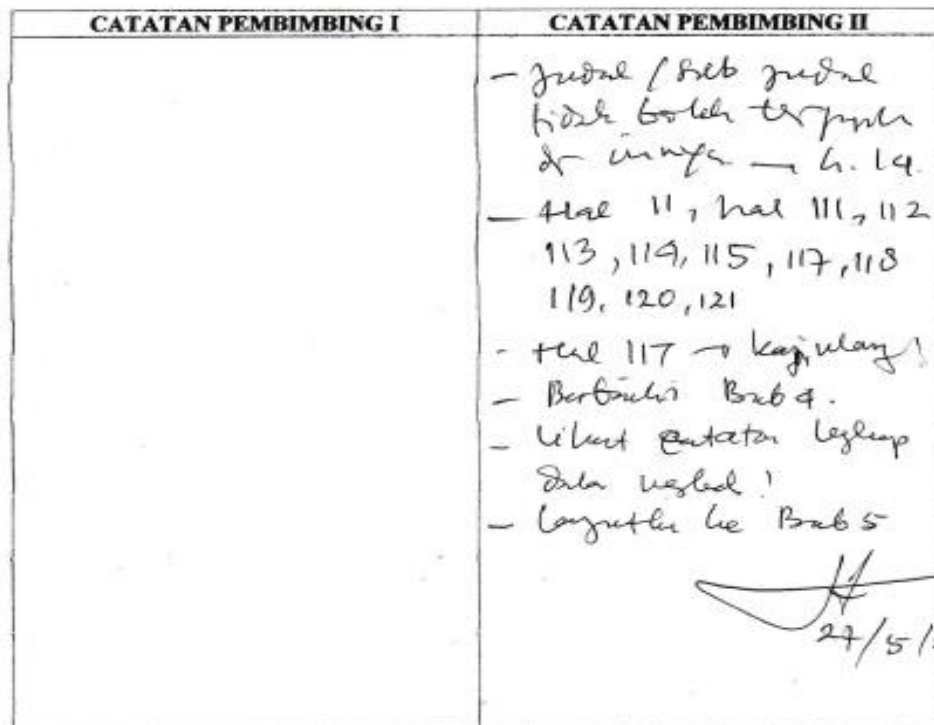 CATATAN PEMBIMBING I
CATATAN PEMBIMBING II
- Judul / Sub judul
tidak boleh terpisah
dr isinya — h. 14.
- Hal 11, hal 111, 112
113, 114, 115, 117, 118
119, 120, 121
- Hal 117 → kaji ulang!
- Perbaiki Bab 4.
- Lihat catatan lengkap
dalam naskah!
- Lanjutkan ke Bab 5
27/5/